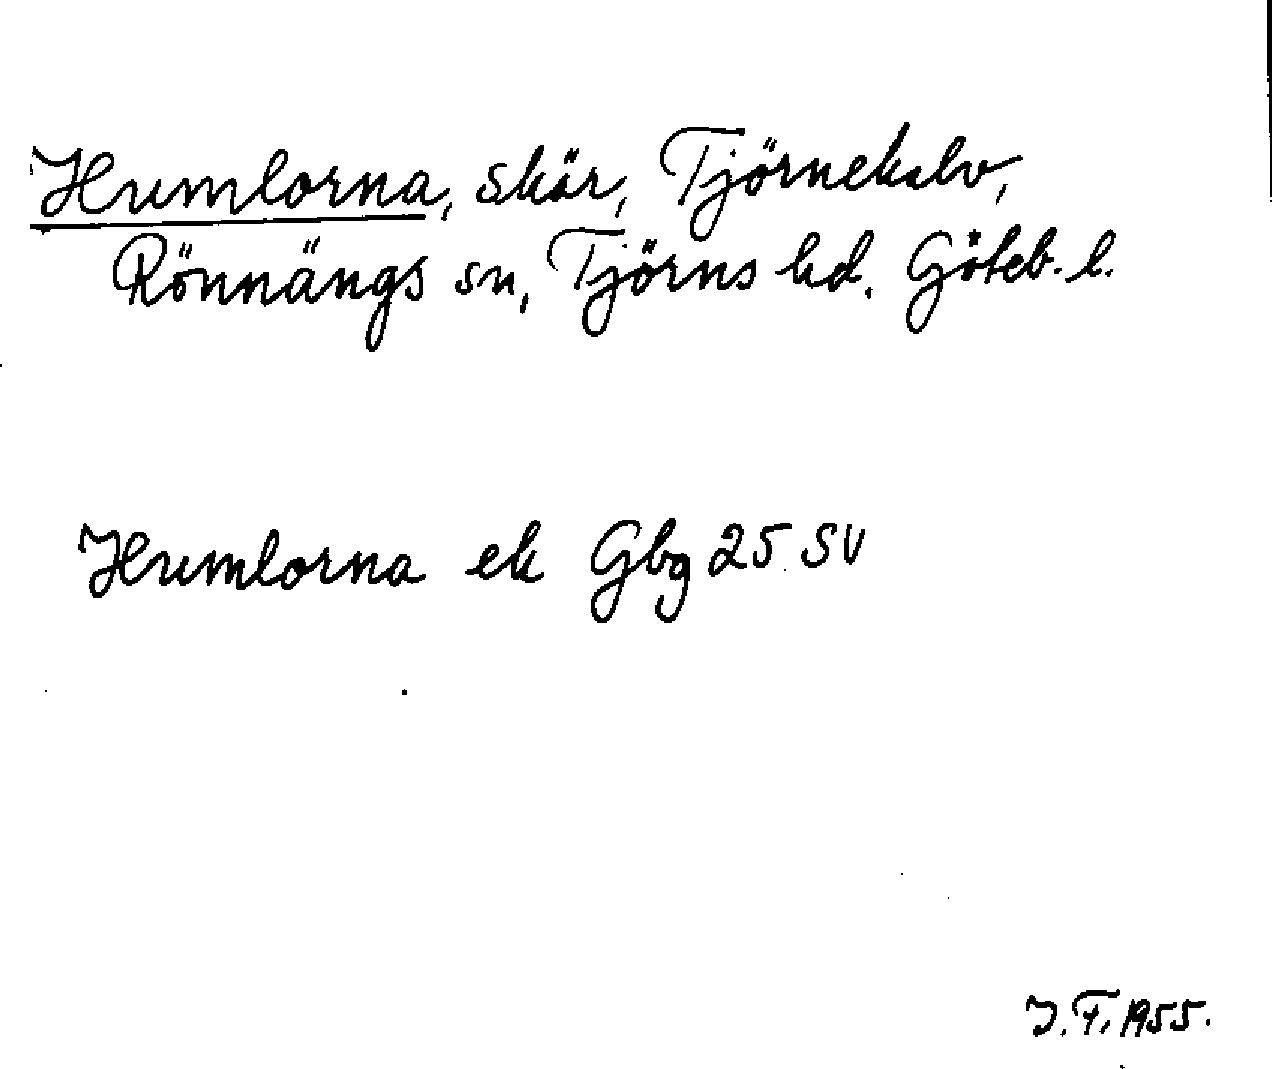 Humlorna, skär, Tjörnekalv,
Rönnängs sn, Tjörns hd. Göteb. l.
Humlorna ek Gbg 25 SV
J.F. 1955.